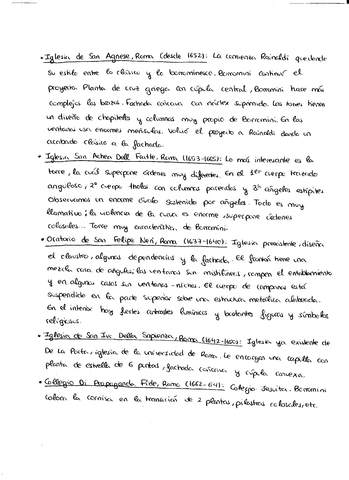 • Iglesia de San Agnese, Roma (desde 1652): La comienza Rainaldi quedando
su estilo entre lo clásico y lo borrominesco. Borromini continuó el
proyecto. Planta de cruz griega con cúpula central, Borromini hace más
complejos los brazos. Fachada cóncava con núcleo suprimido. Las torres tienen
un diseño de chapiteles y columnas muy propio de Borromini. En las
ventanas usa enormes ménsulas. Volvió el proyecto a Rainaldi dando un
acabado clásico a la fachada.
• Iglesia San Adrea Dell Fratte, Roma (1653-1665): Lo más interesante es la
torre, la cuál superpone órdenes muy diferentes. En el 1er cuerpo
anguloso, 2º cuerpo tholos con columnas pareadas y 3º ángeles estípites.
Observamos un enorme sostenido por ángeles. Todo es muy
llamativo; la violencia de la curva es enorme, superpone órdenes
colosales... Torre muy característica, de Borromini.
• Oratorio de San Felipe Neri, Roma (1637-1640): Iglesia preexistente, diseña
el claustro, algunas dependencias y la fachada. El frontis tiene una
mezcla rara de ángulos, las ventanas son mixtilíneas, rompen el entablamento
y en algunos casos son ventanas-nichos. El cuerpo de campanas está
suspendido en la parte superior sobre una estructura metálica
En el interior hay fuertes contrastes lumínicos y bastantes figuras y símbolos
religiosos.
• Iglesia de San Ivo Della Sapienza, Roma (1642-1650): Iglesia ya existente de
De La Porta, iglesia de la universidad de Roma. Le encargan una capilla con
planta de estrella de 6 puntas, fachada cóncava y cúpula convexa.
• Collegio Di Propaganda Fide, Roma (1662-64): Colegio Jesuita. Borromini
coloca la cornisa en la transición de 2 plantas, pilastras colosales, etc.